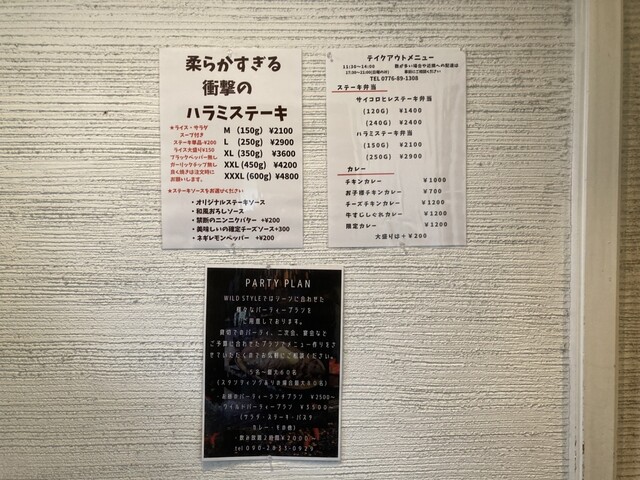 柔らかすぎる
衝撃の
ハラミステーキ
★ライス・サラダ
スープ付き
ステーキ単品-¥200
ライス大盛り¥150
ブラックペッパー無し
ガーリックチップ無し
良く焼きは注文時に
お願いします。
M (150g) ¥2100
L (250g) ¥2900
XL (350g) ¥3600
XXL (450g) ¥4200
XXXL (600g) ¥4800
★ステーキソースをお選びください
・オリジナルステーキソース
・和風おろしソース
・禁断のニンニクバター +¥200
・美味しいの確定チーズソース+300
・ネギレモンペッパー +¥200
テイクアウトメニュー
11:30~14:00
17:30~21:00(日曜のみ)
数が多い場合や近隣への配達は
気軽にご相談ください
TEL 0776-89-1308
ステーキ弁当
サイコロヒレステーキ弁当
(120G) ¥1400
(240G) ¥2400
ハラミステーキ弁当
(150G) ¥2100
(250G) ¥2900
カレー
チキンカレー ¥1000
お子様チキンカレー ¥700
チーズチキンカレー ¥1200
牛すじしぐれカレー ¥1200
限定カレー ¥1200
大盛りは+¥200
PARTY PLAN
WILD STYLEではシーンに合わせた
様々なパーティープランを
ご用意しております。
貸切でのパーティ、二次会、宴会など
ご予算に合わせたプランでメニュー作りをさ
せていただくのでお気軽にご相談ください。
5名~最大60名
(スタンディングありの場合最大80名)
・お昼のパーティーランチプラン ¥2500~
・ワイルドパーティープラン ¥3500~
(サラダ・ステーキ・パスタ
カレー・その他)
・飲み放題2時間¥2000~